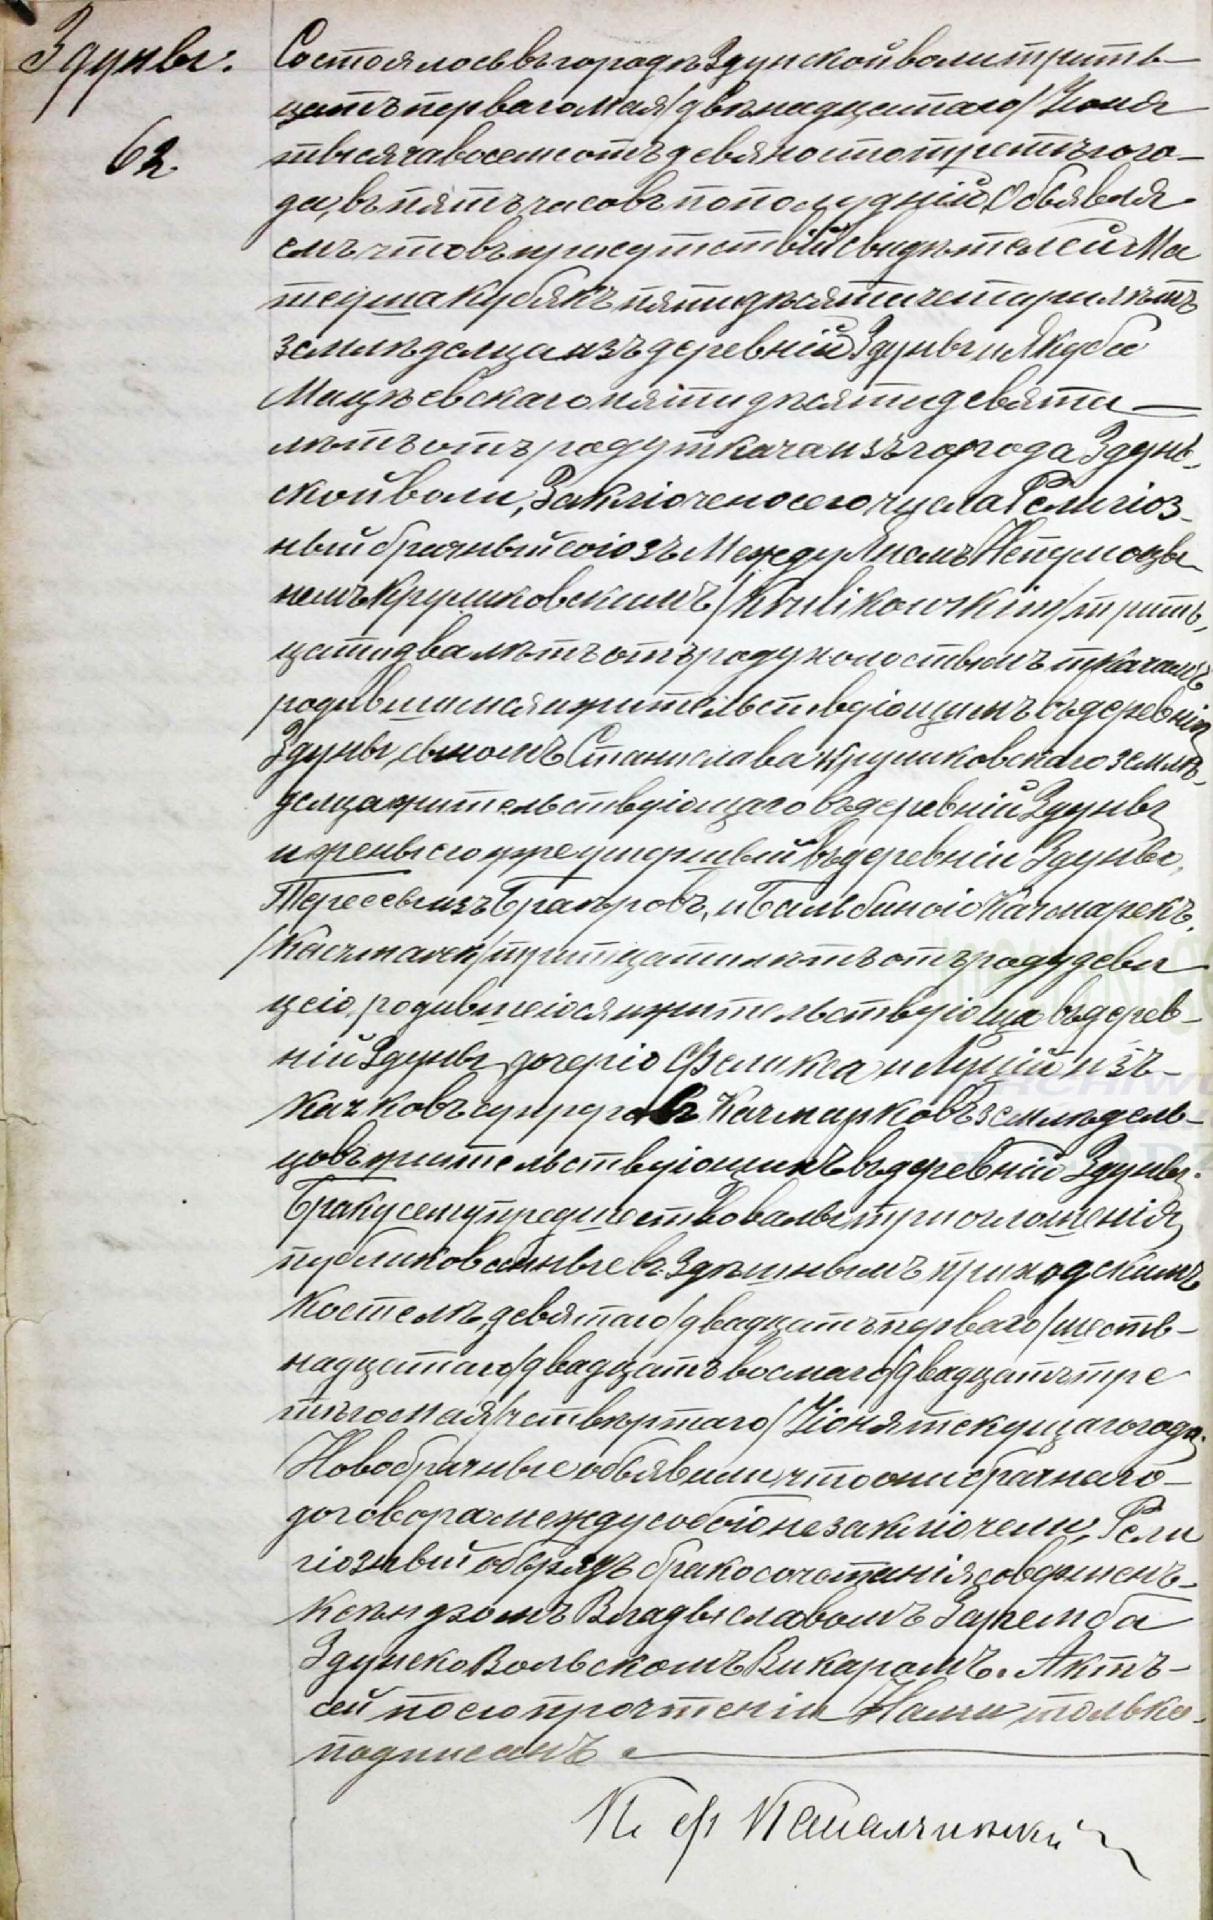 Здуны.
62.
Состоялось въ городѣ Здунской воли трить-
цать перваго Мая /двѣнадцатаго/ Іюня
тысяча восемсотъ девяносто третьго го-
да, въ пять часовъ по полудніи, Объявля-
емъ что въ присутствіи свидѣтелей Ма
теуша Кубякъ пятидѣсяти четыри лѣтъ
земледѣлца изъ деревніи Здуны и Якуба
Мацѣевскаго пятидѣсяти девяти
лѣтъ отъ роду ткача изъ города Здунь-
ской воли, Заключено сего числа Религіоз-
ный брачный союзъ Между Яномъ Непумоцы
немъ Круликовскимъ /Królikowskim/ трить-
цати два лѣтъ отъ роду холостымъ ткачамъ
родившимся и жительствуіощимъ въ деревніи
Здуны, сыномъ Станислава Круликовскаго землѣ-
делца жительствуіощаго въ деревніи Здуны
и жены его уже умершый въ деревніи Здуны,
Тересы изъ Браеровъ, и Бальбиноіо Качмарекъ,
/Kaczmarek/ тритцати лѣтъ отъ роду деви
цеіо, родившеіося и жительствуіоща въ дерев-
ніи Здуны дочеріо Феликса и Луціи изъ
Качковъ супруговъ Качмарковъ земледель-
цовъ жительствуіощихъ въ деревніи Здуны.
Браку сему предшествовалы три оглошенія
публикованные въ Здѣшнымъ приходскимъ
Костелѣ девятаго /двадцать перваго/ шест-
надцатаго /двадцать восмаго/ двадцать тре
тьго Мая /четвѣртаго/ Іюня текущаго года.
Новобрачные объявили что они брачнаго
договора между собоіо не заключели, Рели
гіозный обрядъ бракосочетанія совершенъ
Ксѣндзомъ Владыславомъ Заремба
Здунско Вольскомъ Викаромъ. Актъ
сей по сю прочтеніи Нами только
подписанъ.